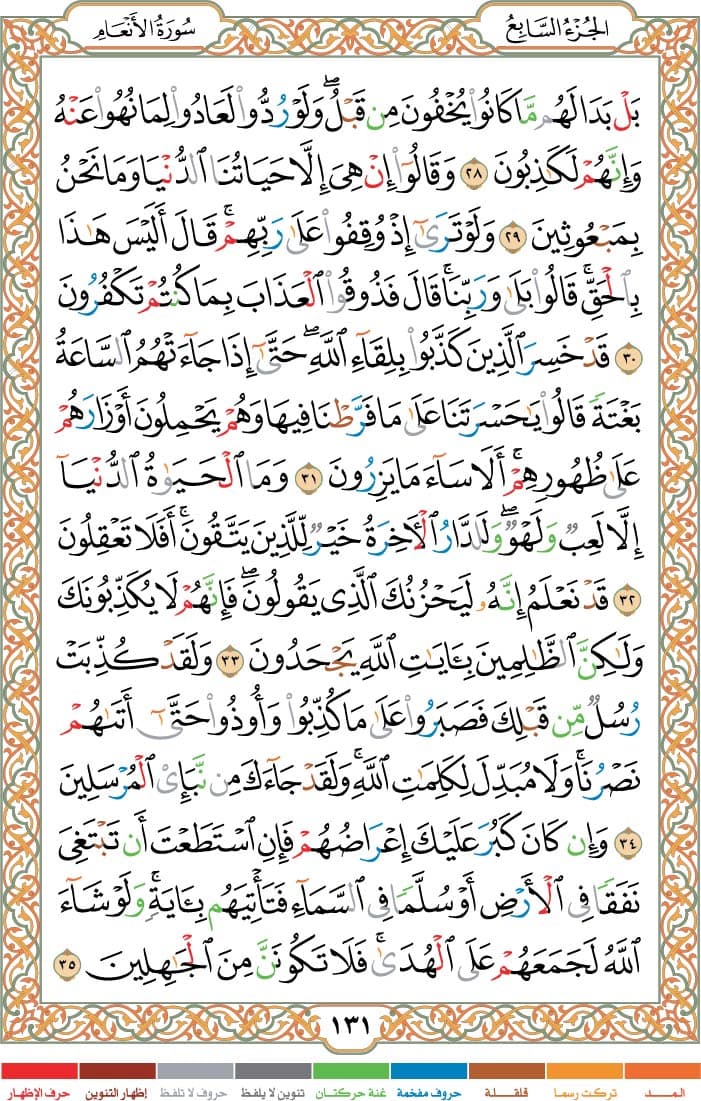 الجُزْءُ السَّابِعُ
سُورَةُ الأَنْعَامِ
بَلْ بَدَا لَهُم مَّا كَانُوا۟ يُخْفُونَ مِن قَبْلُ ۖ وَلَوْ رُدُّوا۟ لَعَادُوا۟ لِمَا نُهُوا۟ عَنْهُ
وَإِنَّهُمْ لَكَـٰذِبُونَ ٢٨ وَقَالُوٓا۟ إِنْ هِىَ إِلَّا حَيَاتُنَا ٱلدُّنْيَا وَمَا نَحْنُ
بِمَبْعُوثِينَ ٢٩ وَلَوْ تَرَىٰٓ إِذْ وُقِفُوا۟ عَلَىٰ رَبِّهِمْ ۚ قَالَ أَلَيْسَ هَـٰذَا
بِٱلْحَقِّ ۚ قَالُوا۟ بَلَىٰ وَرَبِّنَا ۚ قَالَ فَذُوقُوا۟ ٱلْعَذَابَ بِمَا كُنتُمْ تَكْفُرُونَ
٣٠ قَدْ خَسِرَ ٱلَّذِينَ كَذَّبُوا۟ بِلِقَآءِ ٱللَّهِ ۖ حَتَّىٰٓ إِذَا جَآءَتْهُمُ ٱلسَّاعَةُ
بَغْتَةً قَالُوا۟ يَـٰحَسْرَتَنَا عَلَىٰ مَا فَرَّطْنَا فِيهَا وَهُمْ يَحْمِلُونَ أَوْزَارَهُمْ
عَلَىٰ ظُهُورِهِمْ ۚ أَلَا سَآءَ مَا يَزِرُونَ ٣١ وَمَا ٱلْحَيَوٰةُ ٱلدُّنْيَآ
إِلَّا لَعِبٌ وَلَهْوٌ ۖ وَلَلدَّارُ ٱلْـَٔاخِرَةُ خَيْرٌ لِّلَّذِينَ يَتَّقُونَ ۗ أَفَلَا تَعْقِلُونَ
٣٢ قَدْ نَعْلَمُ إِنَّهُۥ لَيَحْزُنُكَ ٱلَّذِى يَقُولُونَ ۖ فَإِنَّهُمْ لَا يُكَذِّبُونَكَ
وَلَـٰكِنَّ ٱلظَّـٰلِمِينَ بِـَٔايَـٰتِ ٱللَّهِ يَجْحَدُونَ ٣٣ وَلَقَدْ كُذِّبَتْ
رُسُلٌ مِّن قَبْلِكَ فَصَبَرُوا۟ عَلَىٰ مَا كُذِّبُوا۟ وَأُوذُوا۟ حَتَّىٰٓ أَتَىٰهُمْ
نَصْرُنَا ۚ وَلَا مُبَدِّلَ لِكَلِمَـٰتِ ٱللَّهِ ۚ وَلَقَدْ جَآءَكَ مِن نَّبَإِى۟ ٱلْمُرْسَلِينَ
٣٤ وَإِن كَانَ كَبُرَ عَلَيْكَ إِعْرَاضُهُمْ فَإِنِ ٱسْتَطَعْتَ أَن تَبْتَغِىَ
نَفَقًا فِى ٱلْأَرْضِ أَوْ سُلَّمًا فِى ٱلسَّمَآءِ فَتَأْتِيَهُم بِـَٔايَةٍ ۚ وَلَوْ شَآءَ
ٱللَّهُ لَجَمَعَهُمْ عَلَى ٱلْهُدَىٰ ۚ فَلَا تَكُونَنَّ مِنَ ٱلْجَـٰهِلِينَ ٣٥
١٣١
المــد تركت رسما قلقلة حروف مفخمة غنة حركتان تنوين لا يلفظ حروف لا تلفظ إظهار التنوين حرف الإظهار